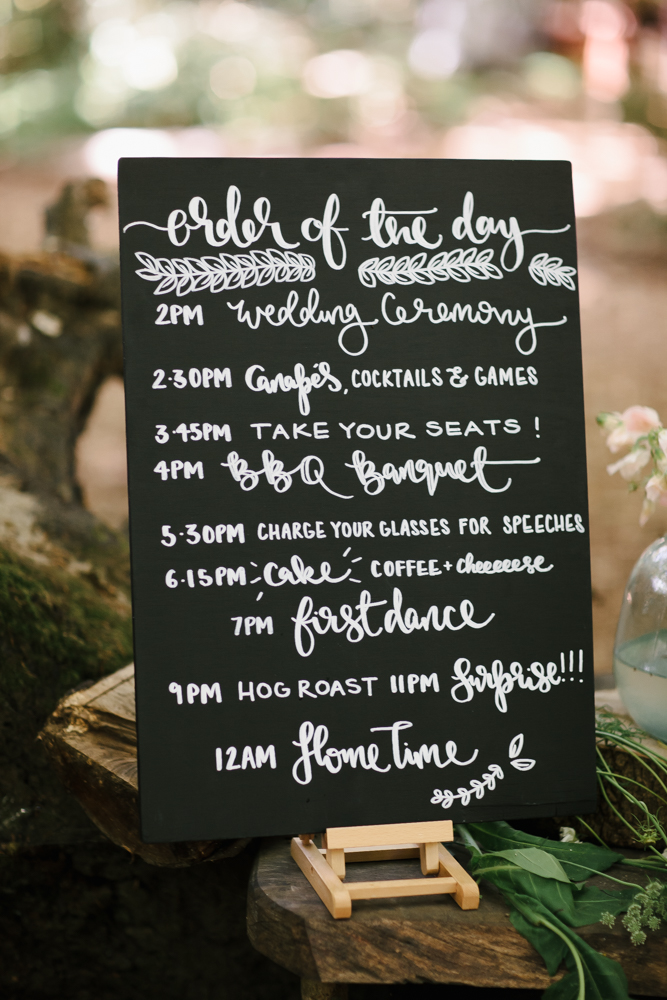 order of the day
2PM Wedding Ceremony
2·30PM Canapés, COCKTAILS & GAMES
3·45PM TAKE YOUR SEATS !
4PM BBQ Banquet
5·30PM CHARGE YOUR GLASSES FOR SPEECHES
6·15PM Cake COFFEE + cheeeeese
7PM first dance
9PM HOG ROAST 11PM Surprise!!!
12AM Home Time